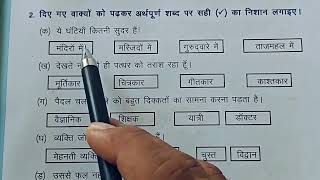 2. दिए गए वाक्यों को पढ़कर अर्थपूर्ण शब्द पर सही (✓) का निशान लगाइए।
(क) ये घंटियाँ कितनी सुंदर हैं।
मंदिरों में मस्जिदों में गुरुद्वारे में ताजमहल में
(ख) देखते ही पत्थर को तराश रहा हूँ।
मूर्तिकार चित्रकार गीतकार काश्तकार
(ग) पैदल को बहुत दिक्कतों का सामना करना पड़ता है।
वैज्ञानिक शिक्षक यात्री डॉक्टर
(घ) व्यक्ति जो
मेहनती व्यक्ति चुस्त विद्वान
(ङ) उससे फल